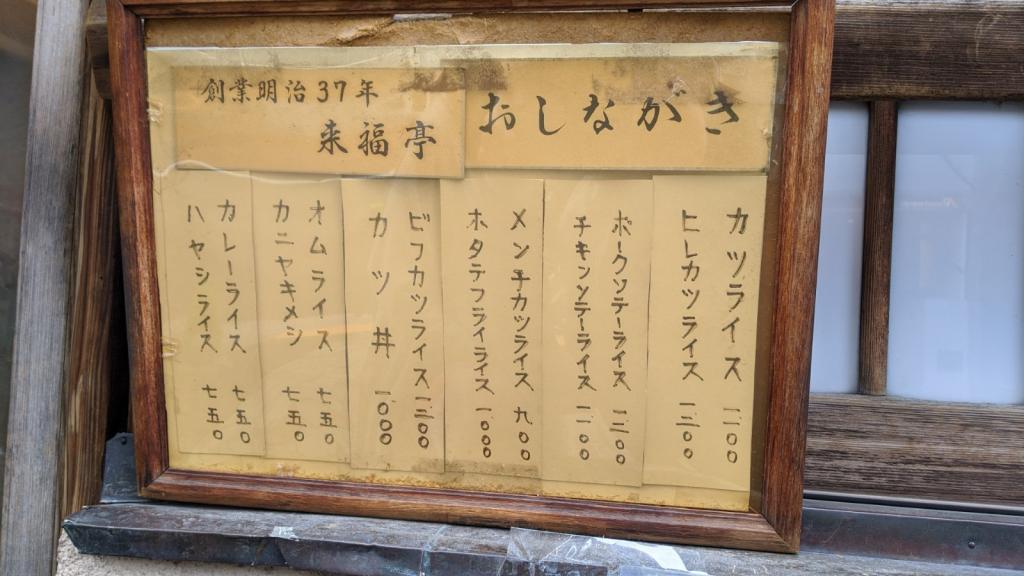 おしながき
創業明治37年
来福亭
カツライス 一一〇〇
ヒレカツライス
ポークソテーライス
チキンソテーライス 一一〇〇
メンチカツライス 九〇〇
ホタテフライライス 一、〇〇〇
ビフカツライス
カツ丼 一、〇〇〇
オムライス 七五〇
カニヤキメシ 七五〇
カレーライス 七五〇
ハヤシライス 七五〇